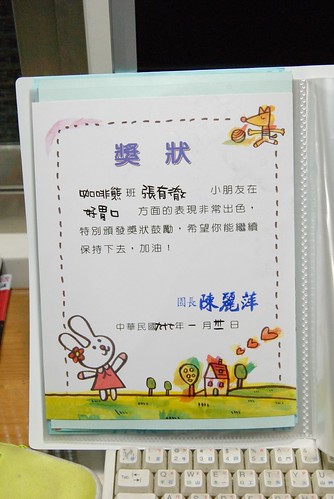 獎狀
咖啡熊 班 張有 小朋友在
好胃口 方面的表現非常出色，
特別頒發獎狀鼓勵，希望你能繼續
保持下去，加油！
園長 陳麗萍
中華民國九七年 一 月 廿 日